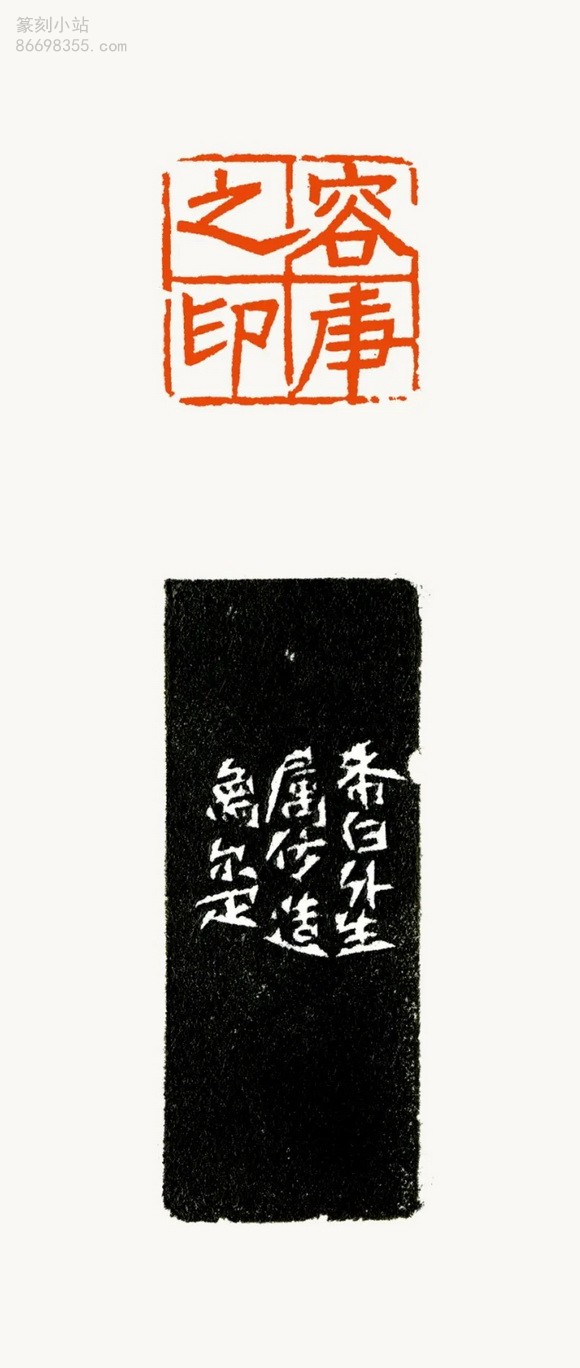 篆刻小站
86698355.com
容庚
之印
希白外生
属仿造
尔疋